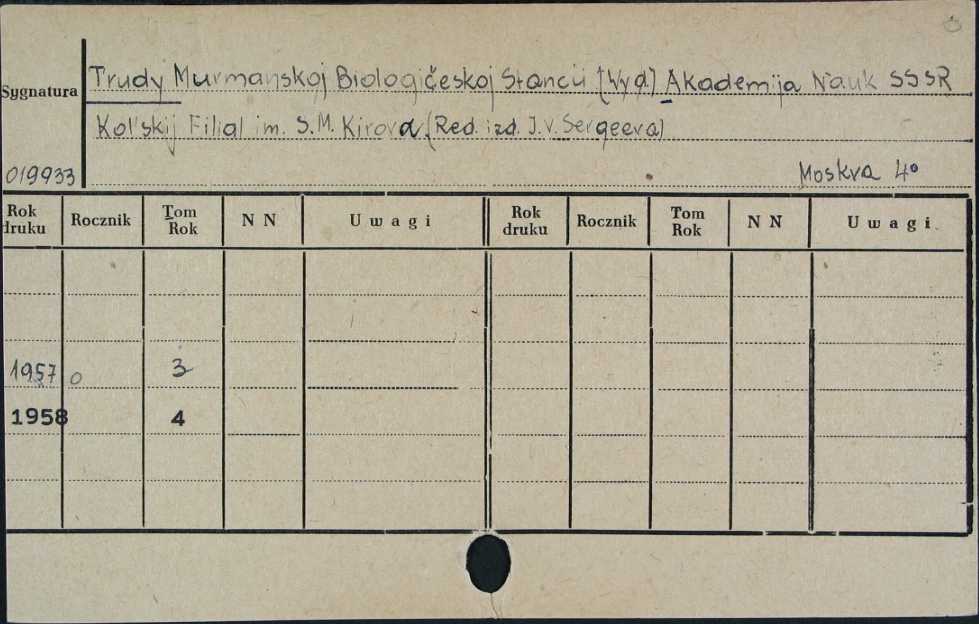 Trudy Murmanskoj Biologičeskoj Stancii (Wyd.) Akademija Nauk SSSR
Sygnatura
Kol'skij Filial im. S.M. Kirova (Red. izd. J.V. Sergeeva)
019933
Moskva 4°
Rok druku Rocznik Tom Rok N N Uwagi Rok druku Rocznik Tom Rok N N Uwagi
1957 0 3
1958 4